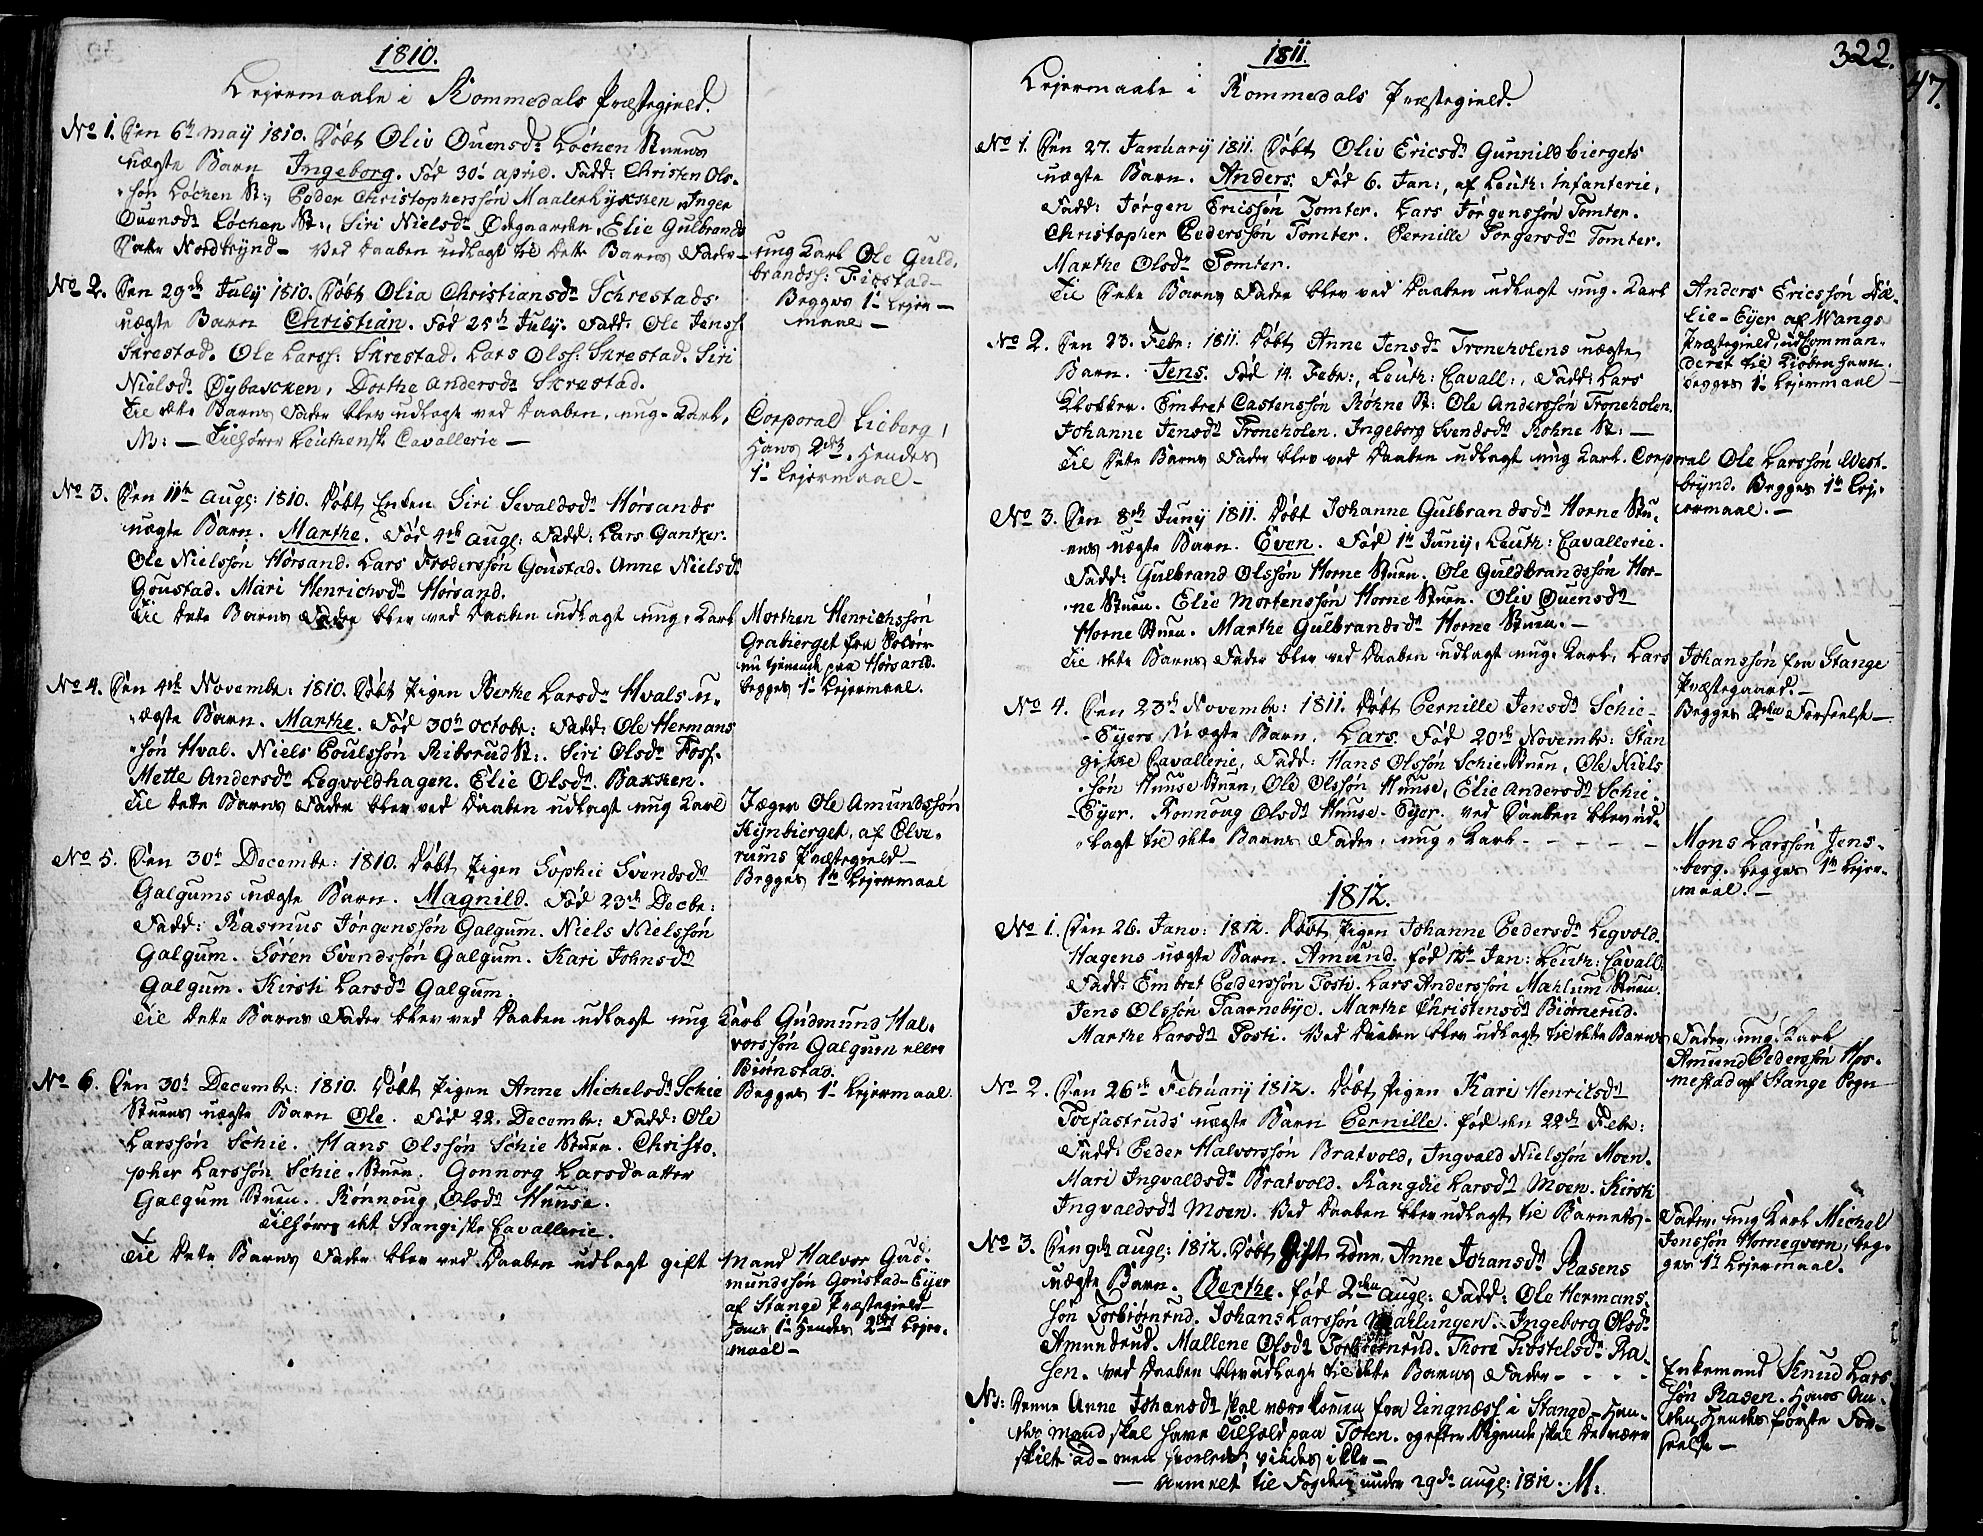 1810.
Lejermaale i Rommedals Præstegield.
No 1. Den 6th may 1810. Døbt Oliv Ouensdr Løchen Stuens
uægte Barn Ingeborg. Fød 30t april. Fadd: Christen Ols-
søn Løchen St:, Peder Christophersøn Maalerlykken, Inger
Ouensdr Løchen St:, Siri Nielsdr Ødegaarden, Elie Gulbrands
Datr Nordtrynd. Ved Daaben udlagt til Dette Barns Fader –
ung Karl Ole Guld-
brandss: Fiæstad –
Begges 1t Lejer-
maal –
No 2. Den 29de July 1810. Døbt Olia Christiansdr Schrestads
uægte Barn Christian. Fød 25th July. Fadd: Ole Jenss:
Skrestad. Ole Larss: Skrestad. Lars Olss: Skrestad. Siri
Nielsdr Øybacken, Dorthe Andersdr Skrestad.
Til dete Barns Fader blev udlagt ved Daaben, ung Karl,
N: – Tilhører Leuthensk Cavallerie –
Corporal Lieberg,
Hans 2det, Hendes
1t Lejermaal –
No 3. Den 11th Augs: 1810. Døbt Enken Siri Sevaldsdr Horsands
uægte Barn. Marthe. Fød 4th Augs: Fadd: Lars Gantxer.
Ole Nielssøn Horsand. Lars Frederssøn Goustad. Anne Nielsdr
Goustad. Mari Henrichsdr Horsand.
Til Dete Barns Fader blev ved Daaben udlagt ung Karl
Morthen Henrichssøn
Graberget fra Soløer
nu tjenende paa Horsand.
begges 1t Lejermaal.
No 4. Den 4th Novembr: 1810. Døbt Pigen Berthe Larsdr Hvals u-
ægte Barn. Marthe. Fød 30th octobr: Fadd: Ole Hermans
søn Hval. Niels Poulssøn Ribsrud St:. Siri Olsdr Foss.
Mette Andersdr Legvoldhagen. Elie Olsdr Bakken.
Til Dette Barns Fader blev ved Daaben udlagt ung Karl
Jæger Ole Amundssøn
Kynbierget, af Elve-
rums Præstegield –
Begges 1te Lejermaal
No 5. Den 30t Decembr: 1810. Døbt Pigen Sophie Svendsdr
Galgums uægte Barn. Magnild. Fød 23de Decbr:
Fadd: Rasmus Jørgenssøn Galgum. Niels Nielssøn
Galgum. Søren Svendssøn Galgum. Kari Johnsdr
Galgum. Kirsti Larsdr Galgum.
Til Dete Barns Fader blev ved Daaben udlagt ung Karl Gudmund Hal-
vorssøn Galgum eller
Biørnstad.
Begges 1t Lejermaal.
No 6. Den 30t Decembr: 1810. Døbt Pigen Anne Michelsdr Schie
Stuens uægte Barn Ole. Fød 22. Decembr: Fadd: Ole
Larssøn Schie. Hans Olssøn Schie Stuen. Christo-
pher Larssøn Schie-Stuen. Gonnorg Larsdaatter
Galgum Stuen. Rønnoug Olsdr Huuse.
Tilhører det Stangiske Cavallerie.
Til Dete Barns Fader blev ved Daaben udlagt gift Mand Halvor Gud-
mundssøn Goustad-Eyer
af Stange Præstegield –
Hans 1t Hendes 2det Lejer-
maal –
1811.
322.
47.
Lejermaale i Rommedals Præstegield.
No 1. Den 27. January 1811. Døbt Oliv Ericsdr Gunnildbiergets
uægte Barn. Anders. Fød 6. Jan:, af Leuth: Infanterie,
Fadd: Jørgen Ericssøn Tomter. Lars Jørgenssøn Tomter.
Christopher Pederssøn Tomter. Pernille Torgersdr Tomter.
Marthe Olsdr Tomter.
Til Dete Barns Fader blev ved Daaben udlagt ung Karl
Anders Ericssøn
lie-Eyer af Wangs
Præstegield, udComman-
deret til Kiøbenhavn.
begges 1t Lejermaal –
No 2. Den 23. Febr: 1811. Døbt Anne Jensdr Troneholens uægte
Barn. Jens. Fød 14. Febr:, Leuth: Cavall:, Fadd: Lars
Klokker. Embret Castenssøn Rohne St: Ole Anderssøn Troneholen.
Johanne Jensdr Troneholen. Ingeborg Svendsdr Rohne St: –
Til Dete Barns Fader blev ved Daaben udlagt ung Karl. Corporal Ole Larssøn West-
brynd. Begges 1te Lej-
ermaal. –
No 3. Den 8de Juny 1811. Døbt Johanne Gulbrandsdr Horne Stu-
ens uægte Barn. Even. Fød 1te Juny, Leuth: Cavallerie.
Fadd: Gulbrand Olssøn Horne Stuen. Ole Guldbrandssøn Hor-
ne Stuen. Elie Mortenssøn Horne Stuen. Oliv Ouensdr
Horne Stuen. Marthe Gulbrandsdr Horne Stuen. –
Til dete Barns Fader blev ved Daaben udlagt ung Karl, Lars
Johanssøn fra Stange
Præstegaard. –
Begges 2den Forseelse –
No 4. Den 23de Novembr: 1811. Døbt Pernille Jensdr Schie-
Eyers uægte Barn. Lars. Fød 20de Novembr: Stan
giske Cavallerie, Fadd: Hans Olssøn Schie Stuen, Ole Niels
søn Huuse Stuen, Ole Olssøn Huuse, Elie Andersdr Schie-
Eyer. Ronnoug Olsdr Huuse-Eyer. ved Daaben blev ud-
lagt til dete Barns Fader, ung Karl - - - - -
Mons Larssøn Jens-
berg. begges 1te Lejer-
maal. –
1812.
No 1. Den 26. Janv: 1812. Døbt Pigen Johanne Pedersdr Legvold-
Hagens uægte Barn. Amund. fød 12te Jan: Leuth: Cavall:
Fadd: Embret Pederssøn Tosti. Lars Anderssøn Mahlum Stuen.
Jens Olssøn Taarnebye. Marthe Christensdr Biørnerud.
Marthe Larsdr Tosti. Ved Daaben blev udlagt til dete Barns
Fader, ung Karl
Amund Pederssøn Hor-
mestad af Stange Sogn
No 2. Den 26de February 1812. Døbt Pigen Kari Henriksdr
Torfastruds uægte Barn Pernille. fød den 22de Febr:
Fadd: Peder Halvorssøn Bratvold, Ingvald Nielssøn Moen.
Mari Ingvaldsdr Bratvold. Rangdie Larsdr Moen. Kirsti
Ingvaldsdr Moen. Ved Daaben blev udlagt til Barnets –
Fader, ung Karl Michel
Jenssøn Hornequern, beg-
ges 1te Lejermaal.
No 3. Den 9de Augs: 1812. Døbt Gift Kone Anne Johansdr Rasens
uægte Barn. Berthe. fød 2den Augs: Fadd: Ole Hermans-
søn Torbiørnrud. Johans Larssøn Mæhlungen. Ingeborg Olsdr
Amundrud. Mallene Olsdr Torbiørnrud. Thore Tiøstelsdr Ra-
sen. ved Daaben blev udlagt til dete Barns Fader - - - -
Enkemand Knud Lars
søn Rasen. Hans An-
den, Hendes første For-
seelse –
N: Denne Anne Johansdr skal være kommen fra Lingnæss i Stange – Hen-
des Mand skal have Tilhold paa Toten. og efter Sigende skal De være
skilte ad – men hvorledes, vides ikke –
– Anmelt til Fogden under 29de augs: 1812. M: